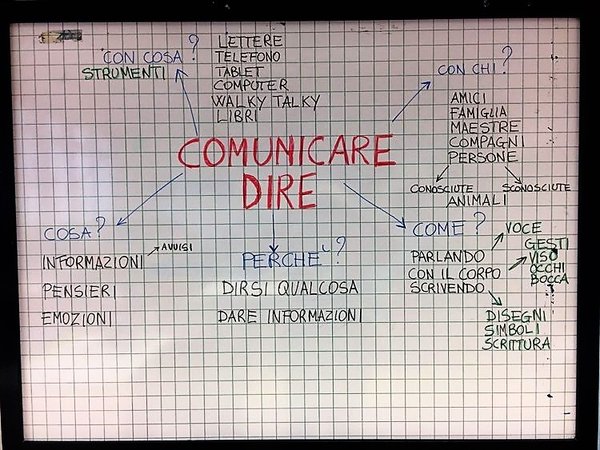 CON COSA?
STRUMENTI
LETTERE
TELEFONO
TABLET
COMPUTER
WALKY TALKY
LIBRI
CON CHI?
AMICI
FAMIGLIA
MAESTRE
COMPAGNI
PERSONE
CONOSCIUTE
SCONOSCIUTE
ANIMALI
COMUNICARE
DIRE
COSA?
INFORMAZIONI
AVVISI
PENSIERI
EMOZIONI
PERCHE'?
DIRSI QUALCOSA
DARE INFORMAZIONI
COME?
PARLANDO
VOCE
CON IL CORPO
GESTI
VISO
OCCHI
BOCCA
SCRIVENDO
DISEGNI
SIMBOLI
SCRITTURA